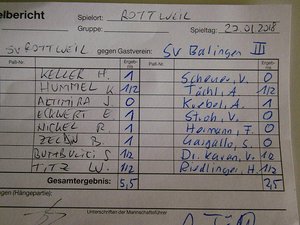 elbericht Spielort: ROTTWEIL
Gruppe: Spieltag: 20.01.2018
SV ROTTWEIL gegen Gastverein: SV Balingen III
Paß-Nr. Ergeb-nis Paß-Nr. Ergeb-nis
KELLER H. 1 Scheurer, V. 0
HUMMEL K. 1/2 Tächl, A. 1/2
ALTIMIRA J. 0 Knebel, A. 1
ECKWERT E. 1 Stroh, V. 0
NICKEL R. 1 Hermann, F. 0
ZELAN B. 1 Gargallo, S. 0
BUMBULICI S. 1/2 Dr. Karan, V. 1/2
TITZ W. 1/2 Riedlinger, H. 1/2
Gesamtergebnis: 5,5 2,5
ngen (Hängepartie):
Unterschriften der Mannschaftsführer